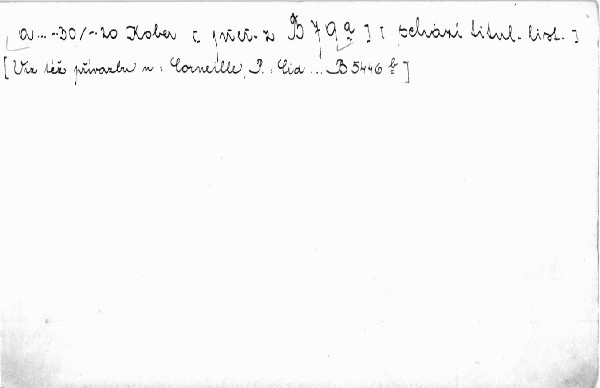 a...-30/-.20 Kober [ přeř. z B 79a ] [ schází titul. list. ]
[Viz též přívazbu u: Corneille, P.: Cid ... B 5446 b]